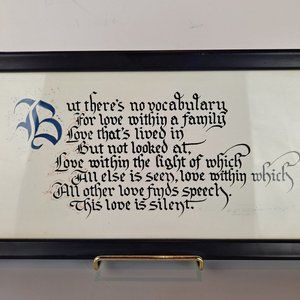 But there's no vocabulary
For love within a family
Love that's lived in
But not looked at,
Love within the light of which
All else is seen, love within which
All other love finds speech.
This love is silent.